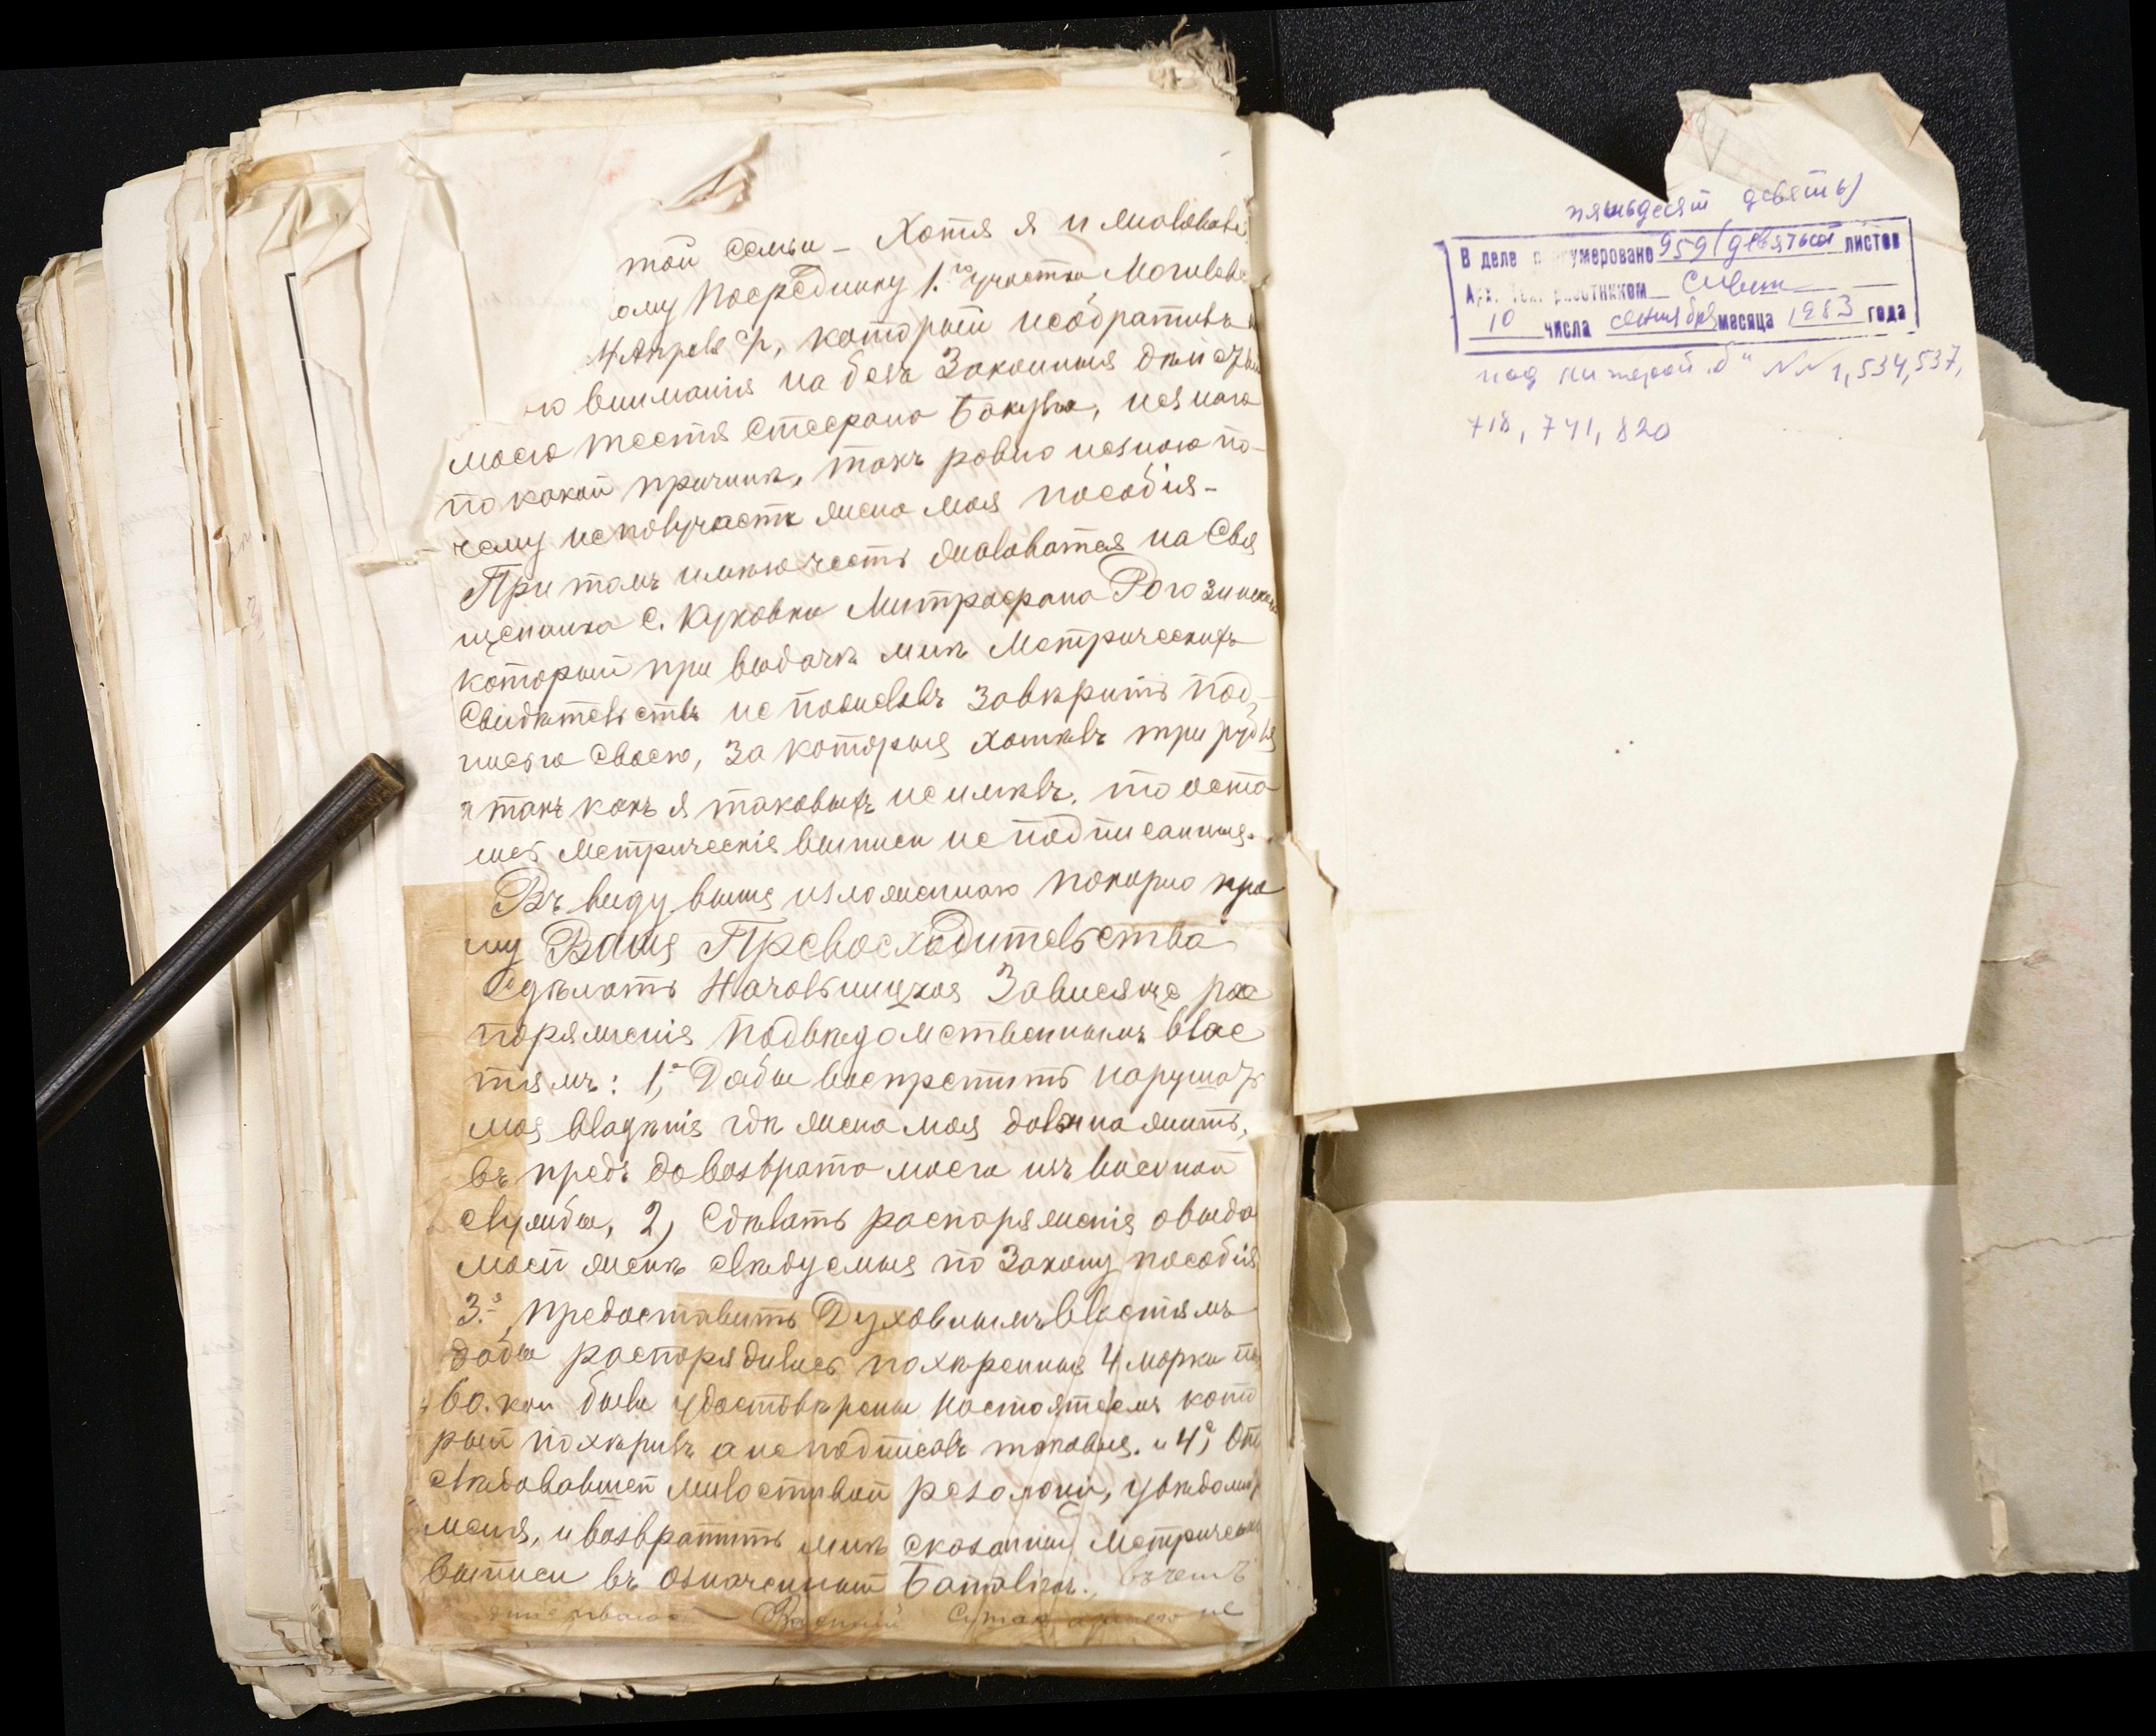 той семьи – Хотя я и жаловалс
ому Посреднику 1.го участка Могилевс
4 Апреля с/г, который необративъ
го вниманія на безъ Законныя дѣйству
моего тестя Стефана Бакула, незнаю
по какой причинѣ, такъ ровно незнаю по-
чему неполучаетъ жена моя пособія –
При томъ имѣю честь жаловатся на Свя
щеника с. Куковки Митрофана Рогозинска
который при выдачѣ мнѣ Метрическихъ
Свидѣтельствъ не пожелалъ Завѣрить под-
писью своею, за которыя хотѣлъ три рубля
а такъ какъ я таковыхъ не имѣлъ, то оста
лись Метрическія выписи не подписанныя.
Въ виду выше изложеннаго покорно про
шу Ваше Превосходительства
Сдѣлать Начальницкая Зависяще рас
поряженія подвѣдомственнымъ влас
тямъ: 1, Дабы воспретить нарушать
моя владѣнія гдѣ жена моя должна жить,
въ предь до возврата моего изъ военной
службы, 2, Сдѣлать распоряженія о выда
моей женѣ слѣдуемыя по Закону пособія
3. предоставить Духовнымъ властямъ
дабы распорядились похѣренныя 4 марки по
60. коп были удостовѣрены Настоятеемъ кото
рый похѣривъ а не подписавъ таковыя. и 4, От
слѣдовавшей милостивой резолюціи, увѣдомить
меня, и возвратить мнѣ сказанныя Метрическія
выписи въ означенный Баталіон. въ чемъ
Василий
пятьдесят девять)
В деле пронумеровано 959 (девятьсот листов
Арх. тех. работником
10 числа сентября месяца 1983 года
под литерой „б" NN 1, 534, 537,
718, 741, 820